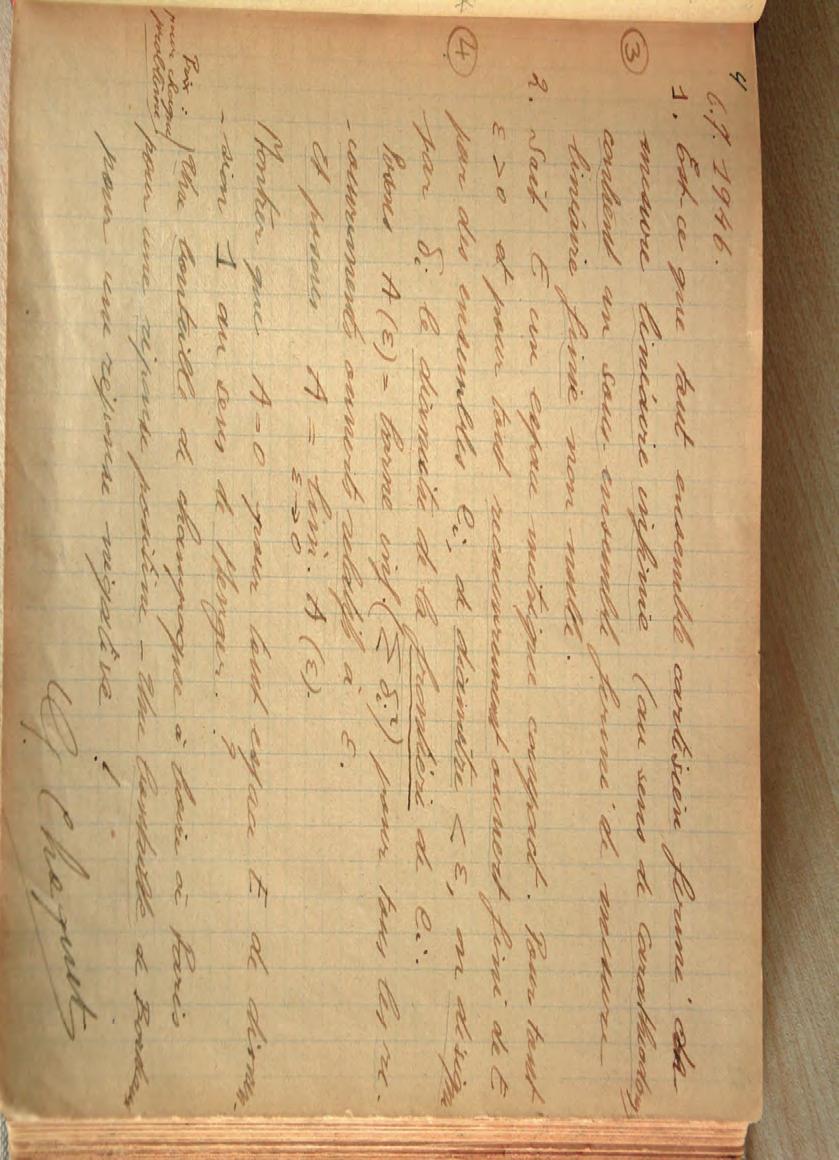 4
6.7.1946.
③ 1. Est ce que tout ensemble cartésien fermé de
mesure linéaire infinie (au sens de Carathéodory)
contient un sous-ensemble fermé de mesure
linéaire finie non nulle.
④ 2. Soit E un espace métrique compact. Pour tout
ε > 0 et pour tout recouvrement ouvert fini de E
par des ensembles ei, de diamètre < ε, on désigne
par δi le diamètre de la frontière de ei.
Posons A(ε) = borne inf. (Σ δi) pour tous les re-
couvrements ouverts relatifs à ε.
et posons A = lim. A(ε).
ε→0
Montrer que A=0 pour tout espace E de dimen-
-sion 1 au sens de Menger. ?
Prix :
pour chaque
problème
Une bouteille de champagne à boire à Paris
pour une réponse positive – Une bouteille de Bordeaux
pour une réponse négative !
G. Choquet